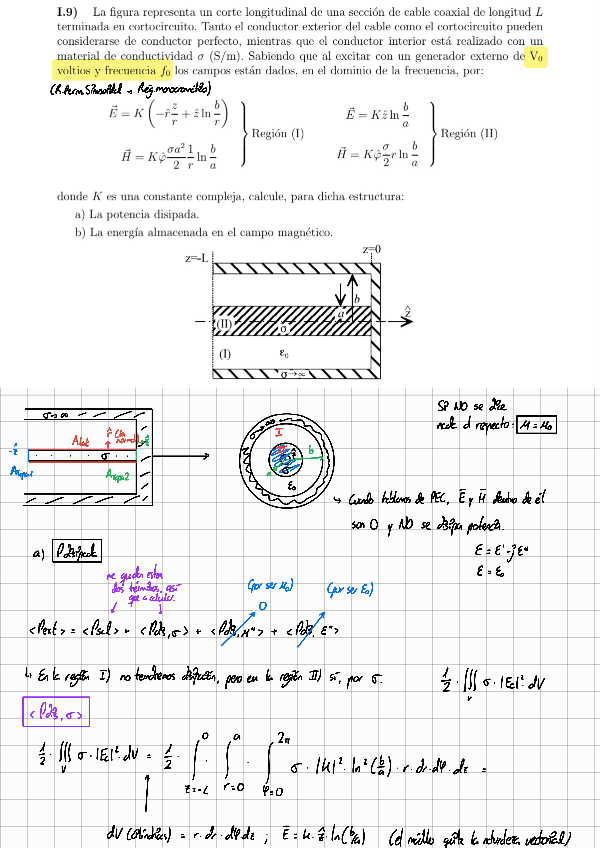 I.9) La figura representa un corte longitudinal de una sección de cable coaxial de longitud L
terminada en cortocircuito. Tanto el conductor exterior del cable como el cortocircuito pueden
considerarse de conductor perfecto, mientras que el conductor interior está realizado con un
material de conductividad σ (S/m). Sabiendo que al excitar con un generador externo de V₀
voltios y frecuencia f₀ los campos están dados, en el dominio de la frecuencia, por:
(R. Perm. Sinusoidal → Rég. monocromático)
E⃗ = K(−r̂ z/r + ẑ ln b/r)
H⃗ = Kφ̂ σa²/2 1/r ln b/a
} Región (I)
E⃗ = Kẑ ln b/a
H⃗ = Kφ̂ σ/2 r ln b/a
} Región (II)
donde K es una constante compleja, calcule, para dicha estructura:
a) La potencia disipada.
b) La energía almacenada en el campo magnético.
z=-L
z=0
b
a
ẑ
(II)
σ
(I)
ε₀
σ→∞
σ→∞
Alat
σ
Atapa1
Atapa2
σ→∞
I
b
a
ε₀
SI NO se dice
nada al respecto: μ = μ₀
↳ Cuando hablamos de PEC, E̅ y H̅ dentro de él
son 0 y NO se disipa potencia.
ε = ε' - jε''
ε = ε₀
a) Pdisipada
me quedan estos
dos términos, así
que a calcular.
(por ser μ₀)
0
(por ser ε₀)
<Pext> = <Psal> + <Pdis,σ> + <Pdis,μ''> + <Pdis,ε''>
↳ En la región I) no tendremos disipación, pero en la región II) sí, por σ.
1/2 · ∭v σ · |E|² · dV
<Pdis,σ>
1/2 · ∭v σ · |E|² · dV = 1/2 · ∫z=-L^0 · ∫r=0^a · ∫φ=0^2π σ · |K|² · ln²(b/a) · r · dr · dφ · dz =
dV (cilíndricas) = r · dr · dφ dz ; E̅ = K · ẑ · ln(b/a) (el módulo quita la naturaleza vectorial)